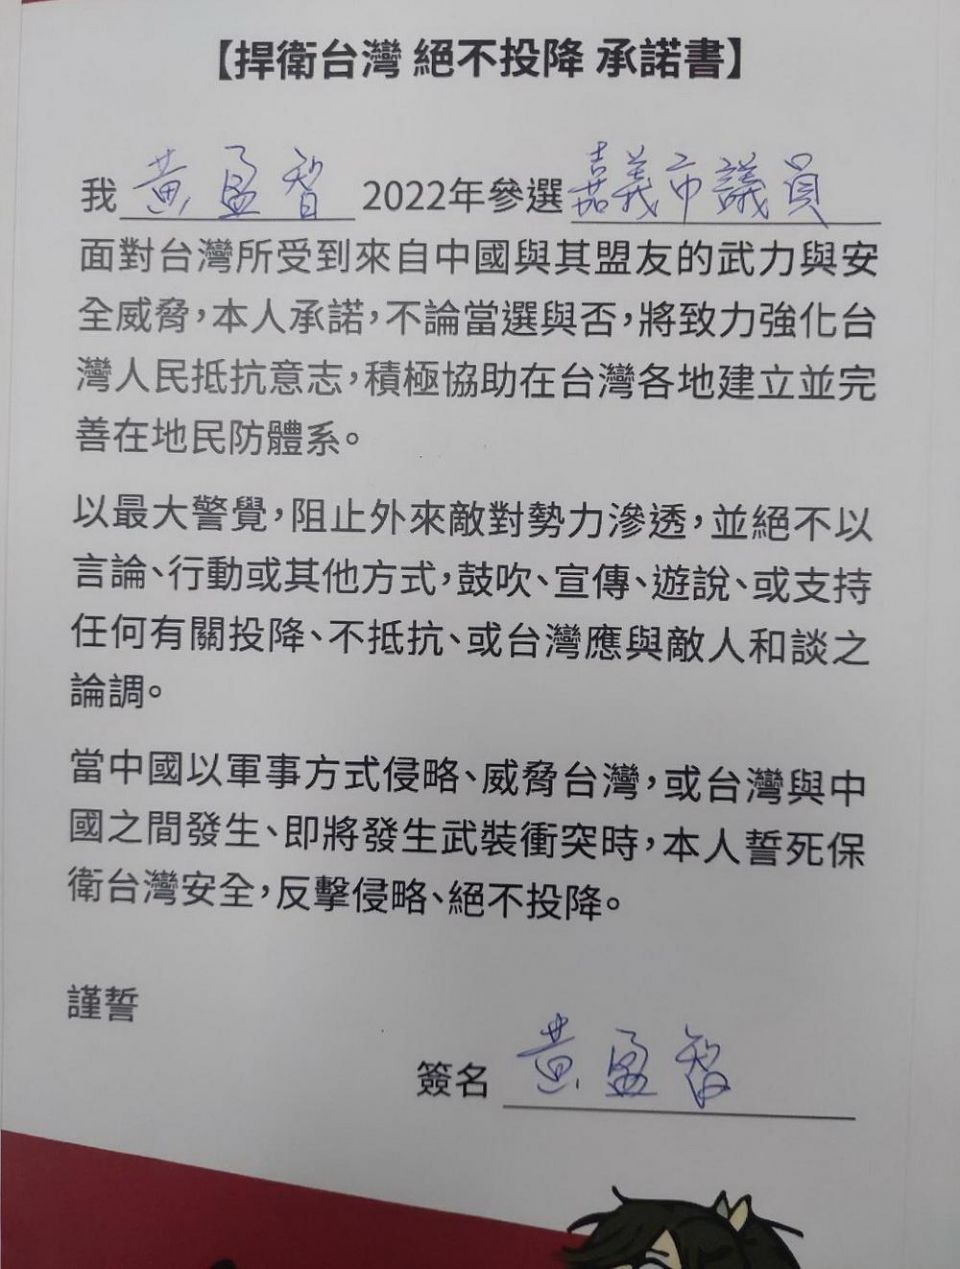 【捍衛台灣 絕不投降 承諾書】
我 黃盈智 2022年參選 嘉義市議員
面對台灣所受到來自中國與其盟友的武力與安
全威脅，本人承諾，不論當選與否，將致力強化台
灣人民抵抗意志，積極協助在台灣各地建立並完
善在地民防體系。
以最大警覺，阻止外來敵對勢力滲透，並絕不以
言論、行動或其他方式，鼓吹、宣傳、遊說、或支持
任何有關投降、不抵抗、或台灣應與敵人和談之
論調。
當中國以軍事方式侵略、威脅台灣，或台灣與中
國之間發生、即將發生武裝衝突時，本人誓死保
衛台灣安全，反擊侵略、絕不投降。
謹誓
簽名 黃盈智